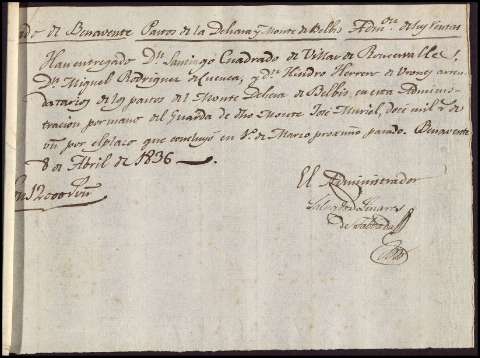 ado de Benavente Pastos de la Dehesa y Monte de Belbis Adm.on de sus Rentas
Han entregado Dn. Santiago Cuadrado de Villar de
Dn. Miguel Rodriguez de Cuenca, y Dn. Ysidro Herrero de arren
datarios de los pastos del Monte Dehesa de Belbis, en esta Adminis
tración por mano del Guarda de dho Monte José Muriel, doce mil r.s de
vn. por el plazo que concluyó en 1.o de Marzo proximo pasado. Benavente
8 de Abril de 1836
Son 12000 r.s vn
El Administrador
Salvador Linares
de